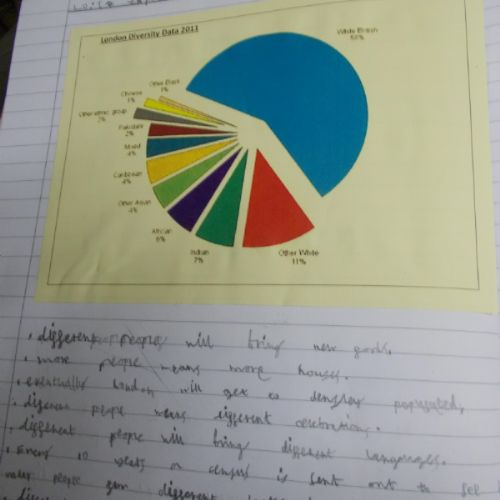 London Diversity Data 2011
White British
Other Black
1%
Chinese
1%
Other ethnic group
3%
Pakistani
2%
Mixed
4%
Caribbean
4%
Other Asian
4%
African
6%
Indian
7%
Other White
11%
. different people will bring new goods.
. more people means more houses.
. eventually London will get so densley populated,
. different people means different celebrations.
. different people will bring different languages.
. every 10 years a census is sent out to see
people different